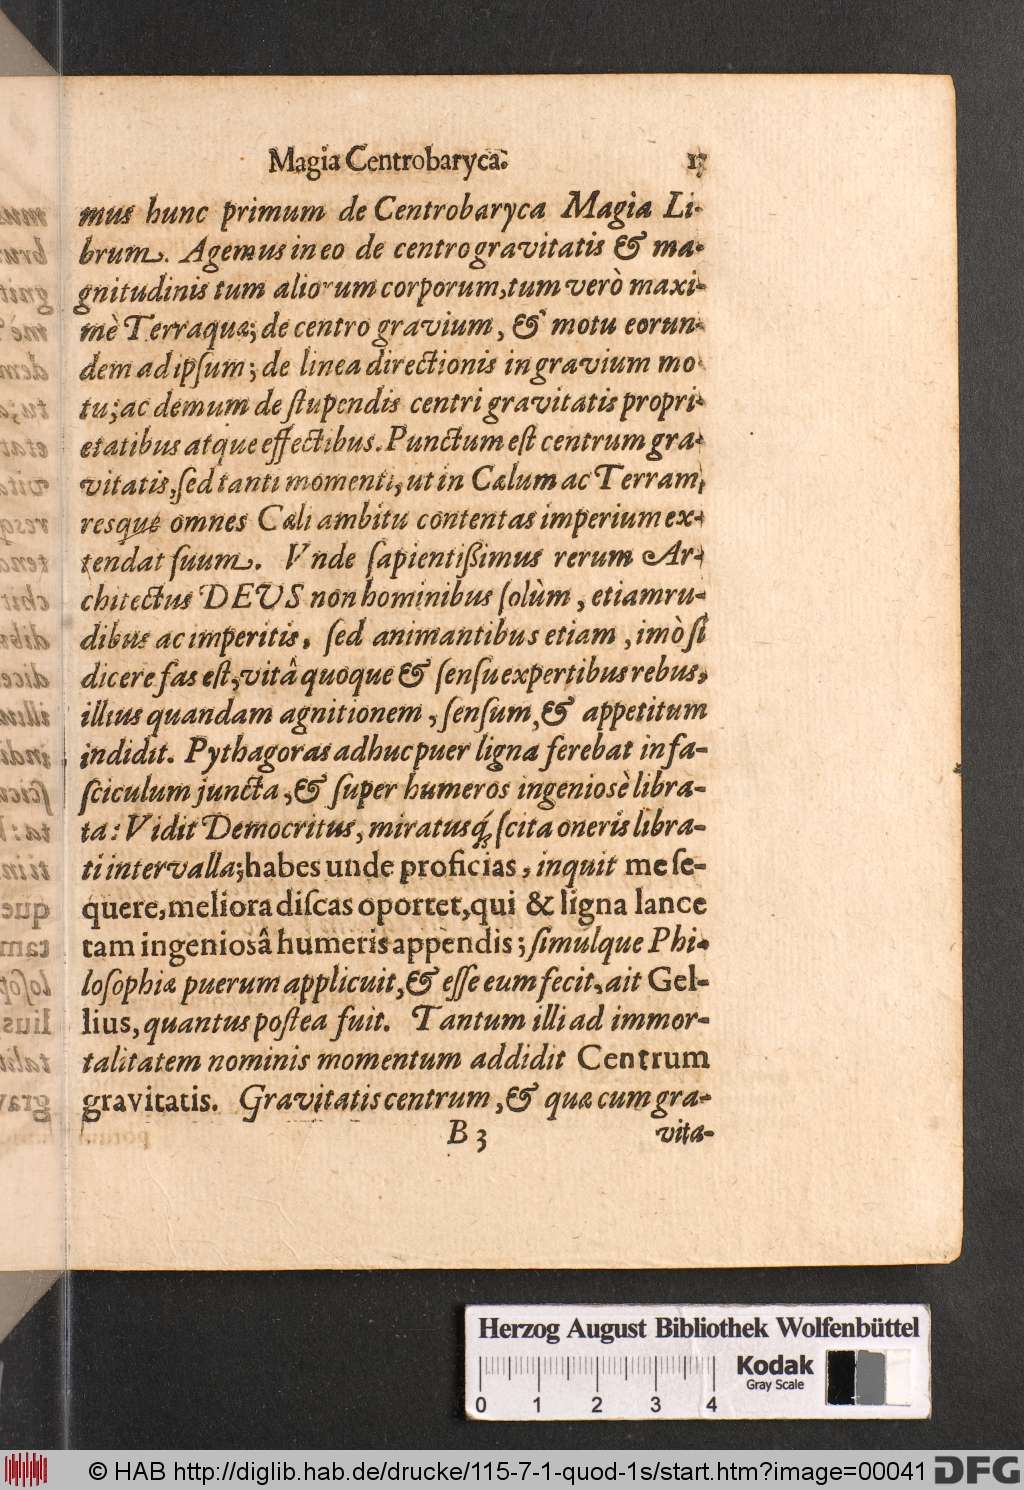 Magia Centrobaryca. 17
mus hunc primum de Centrobaryca Magia Li-
brum. Agemus in eo de centro gravitatis & ma-
gnitudinis tum aliorum corporum, tum verò maxi-
mè Terraquæ; de centro gravium, & motu eorun-
dem ad ipſum; de linea directionis in gravium mo-
tu; ac demum de ſtupendis centri gravitatis propri-
etatibus atque effectibus. Punctum eſt centrum gra-
vitatis, ſed tanti momenti, ut in Cælum ac Terram,
resque omnes Cæli ambitu contentas imperium ex-
tendat ſuum. Vnde ſapientißimus rerum Ar-
chitectus DEVS non hominibus ſolùm, etiam ru-
dibus ac imperitis, ſed animantibus etiam, imò ſi
dicere fas eſt, vitâ quoque & ſenſu expertibus rebus,
illius quandam agnitionem, ſenſum, & appetitum
indidit. Pythagoras adhuc puer ligna ferebat in fa-
ſciculum juncta, & ſuper humeros ingeniosè libra-
ta: Vidit Democritus, miratusq́; ſcita oneris libra-
ti intervalla; habes unde proficias, inquit me ſe-
quere, meliora diſcas oportet, qui & ligna lance
tam ingeniosâ humeris appendis; ſimulque Phi-
loſophiæ puerum applicuit, & eſſe eum fecit, ait Gel-
lius, quantus poſtea fuit. Tantum illi ad immor-
talitatem nominis momentum addidit Centrum
gravitatis. Gravitatis centrum, & quæ cum gra-
B 3 vita-
Herzog August Bibliothek Wolfenbüttel
Kodak
Gray Scale
0 1 2 3 4
© HAB http://diglib.hab.de/drucke/115-7-1-quod-1s/start.htm?image=00041 DFG